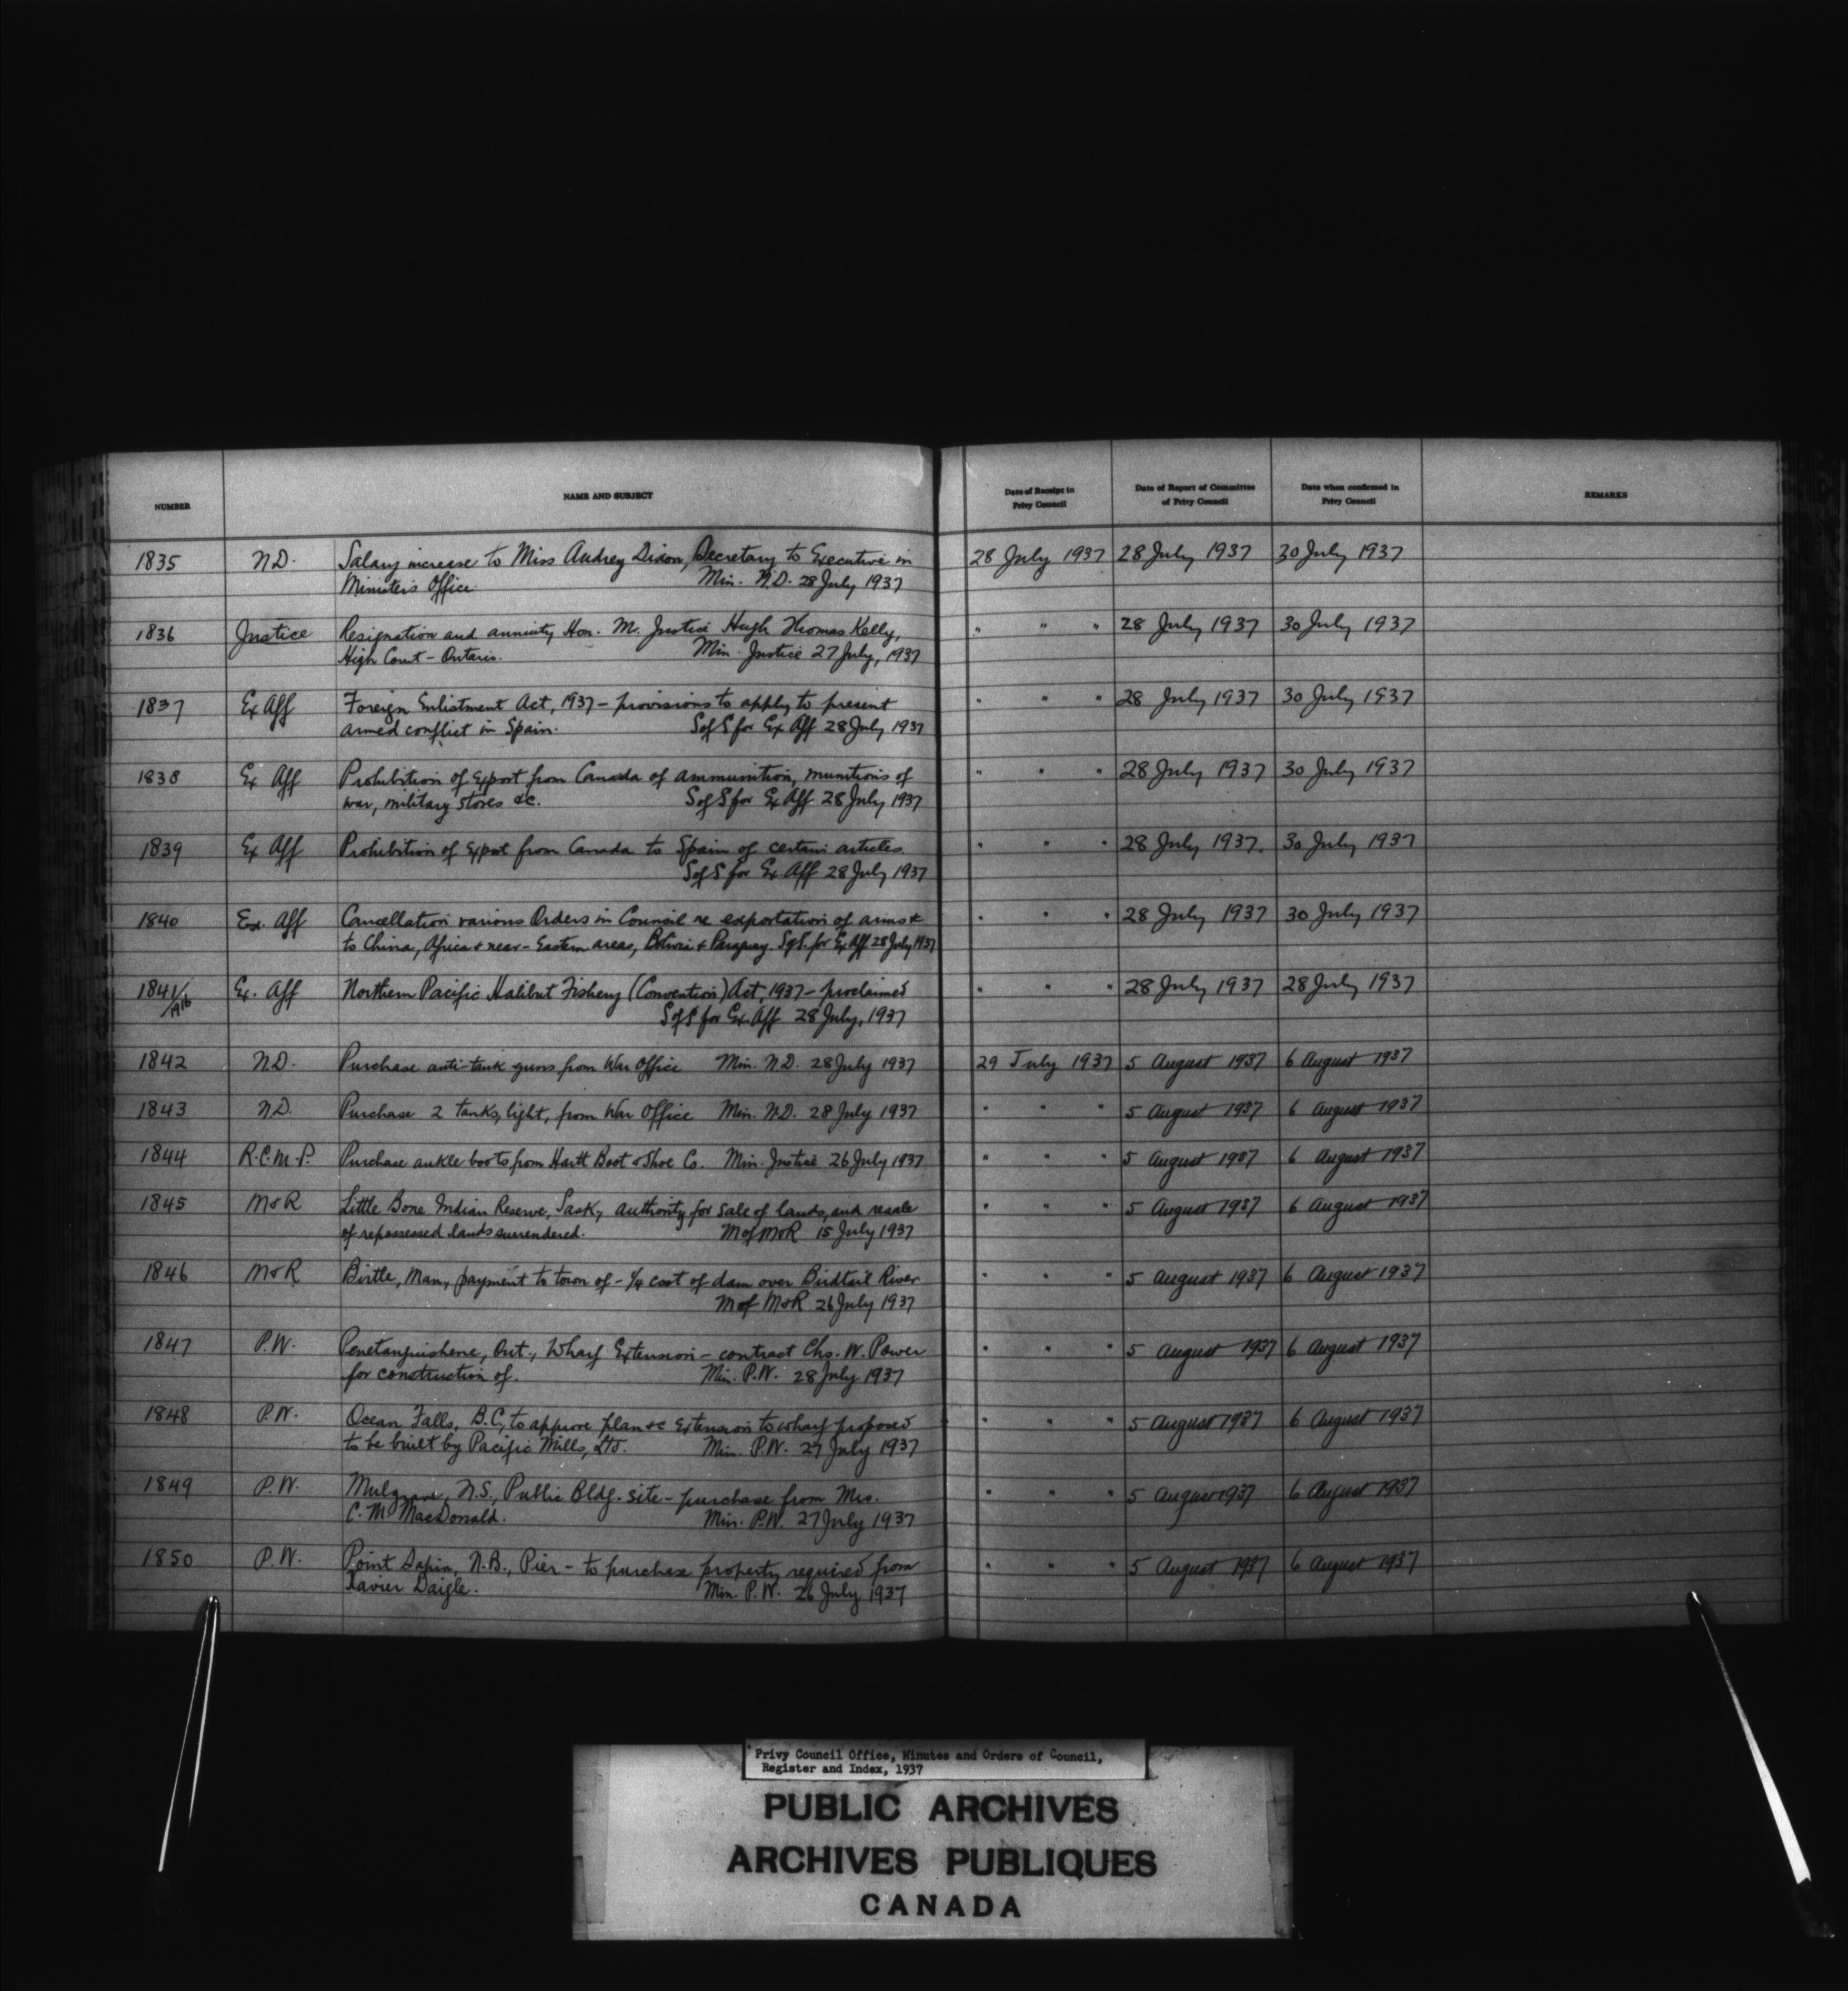 NUMBER NAME AND SUBJECT Date of Receipt in Privy Council Date of Report of Committee of Privy Council Date when confirmed in Privy Council REMARKS
1835 N.D. Salary increase to Miss Audrey Dixon, Secretary to Executive in 28 July 1937 28 July 1937 30 July 1937
Minister's Office. Min. N.D. 28 July 1937
1836 Justice Resignation and annuity Hon. M. Justice Hugh Thomas Kelly, " " " 28 July 1937 30 July 1937
High Court - Ontario. Min. Justice 27 July, 1937
1837 Ex Aff Foreign Enlistment Act, 1937 - provisions to apply to present " " " 28 July 1937 30 July 1937
armed conflict in Spain. S of S for Ex Aff 28 July 1937
1838 Ex Aff Prohibition of export from Canada of ammunition, munitions of " " " 28 July 1937 30 July 1937
war, military stores &c. S of S for Ex Aff 28 July 1937
1839 Ex Aff Prohibition of export from Canada to Spain of certain articles " " " 28 July 1937. 30 July 1937
S of S for Ex. Aff 28 July 1937
1840 Ex. Aff Cancellation various Orders in Council re exportation of arms &c " " " 28 July 1937 30 July 1937
to China, Africa & near-Eastern areas, Bolivia & Paraguay. S of S. for Ex Aff 28 July 1937
1841/ Ex. Aff Northern Pacific Halibut Fishery (Convention) Act, 1937 - proclaimed " " " 28 July 1937 28 July 1937
S of S for Ex. Aff 28 July, 1937
1842 N.D. Purchase anti-tank guns from War Office Min. N.D. 28 July 1937 29 July 1937 5 August 1937 6 August 1937
1843 N.D. Purchase 2 tanks, light, from War Office Min. N.D. 28 July 1937 " " " 5 August 1937 6 August 1937
1844 R.C.M.P. Purchase ankle boots from Hartt Boot & Shoe Co. Min. Justice 26 July 1937 " " " 5 August 1937 6 August 1937
1845 M&R Little Bone Indian Reserve, Sask, authority for sale of lands, and resale " " " 5 August 1937 6 August 1937
of repossessed lands surrendered. M of M&R 15 July 1937
1846 M&R Birtle, Man, payment to town of - 1/4 cost of dam over Birdtail River " " " 5 August 1937 6 August 1937
M of M&R 26 July 1937
1847 P.W. Penetanguishene, Ont., Wharf Extension - contract Chs. W. Power " " " 5 August 1937 6 August 1937
for construction of. Min. P.W. 28 July 1937
1848 P.W. Ocean Falls, B.C., to approve plan &c extension to wharf proposed " " " 5 August 1937 6 August 1937
to be built by Pacific Mills, Ltd. Min. P.W. 27 July 1937
1849 P.W. Mulgrave, N.S., Public Bldg. site - purchase from Mrs. " " " 5 August 1937 6 August 1937
C. M. MacDonald. Min. P.W. 27 July 1937
1850 P.W. Point Sapin, N.B., Pier - to purchase property required from " " " 5 August 1937 6 August 1937
Xavier Daigle. Min. P.W. 26 July 1937
Privy Council Office, Minutes and Orders of Council,
Register and Index, 1937
PUBLIC ARCHIVES
ARCHIVES PUBLIQUES
CANADA